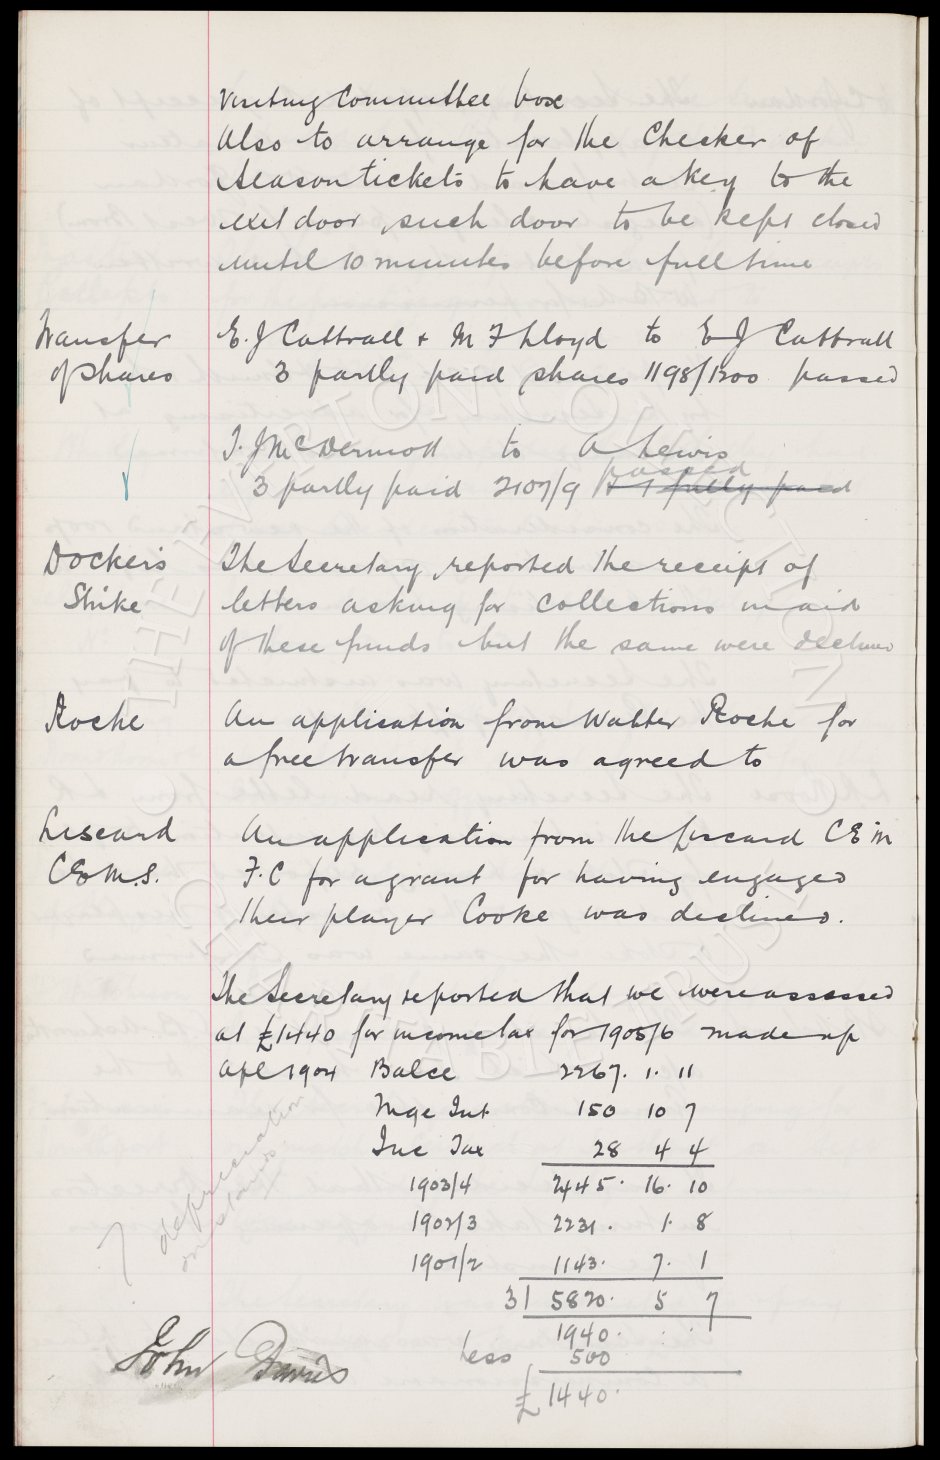 Visiting Committee box
Also to arrange for the Checker of
Season tickets to have a key to the
exit door, such door to be kept closed
until 10 minutes before full time
Transfer of Shares
E. J Cattrall + M F Lloyd to E J Cattrall
3 partly paid shares 1198/1200 passed
T. J McDermott to A Lewis
passed
3 partly paid 2107/9 + 1 fully paid
Dockers Strike
The Secretary reported the receipt of
letters asking for collections in aid
of these funds but the same were declined
Roche
An application from Walter Roche for
a free transfer was agreed to
Liscard C E M.S.
An application from the Liscard C E M
F.C for a grant for having engaged
their player Cooke was declined.
The Secretary reported that we were assessed
at £1440 for income tax for 1905/6 made up
Apl 1904 Balce 2267. 1. 11
Mge Int 150 10 7
Inc Tax 28 4 4
1903/4 2445. 16. 10
1902/3 2231. 1. 8
1901/2 1143. 7. 1
3| 5820. 5 7
1940.
Less 500
£1440.
? depreciation
on stands
John Davies
THE EVERTON CO